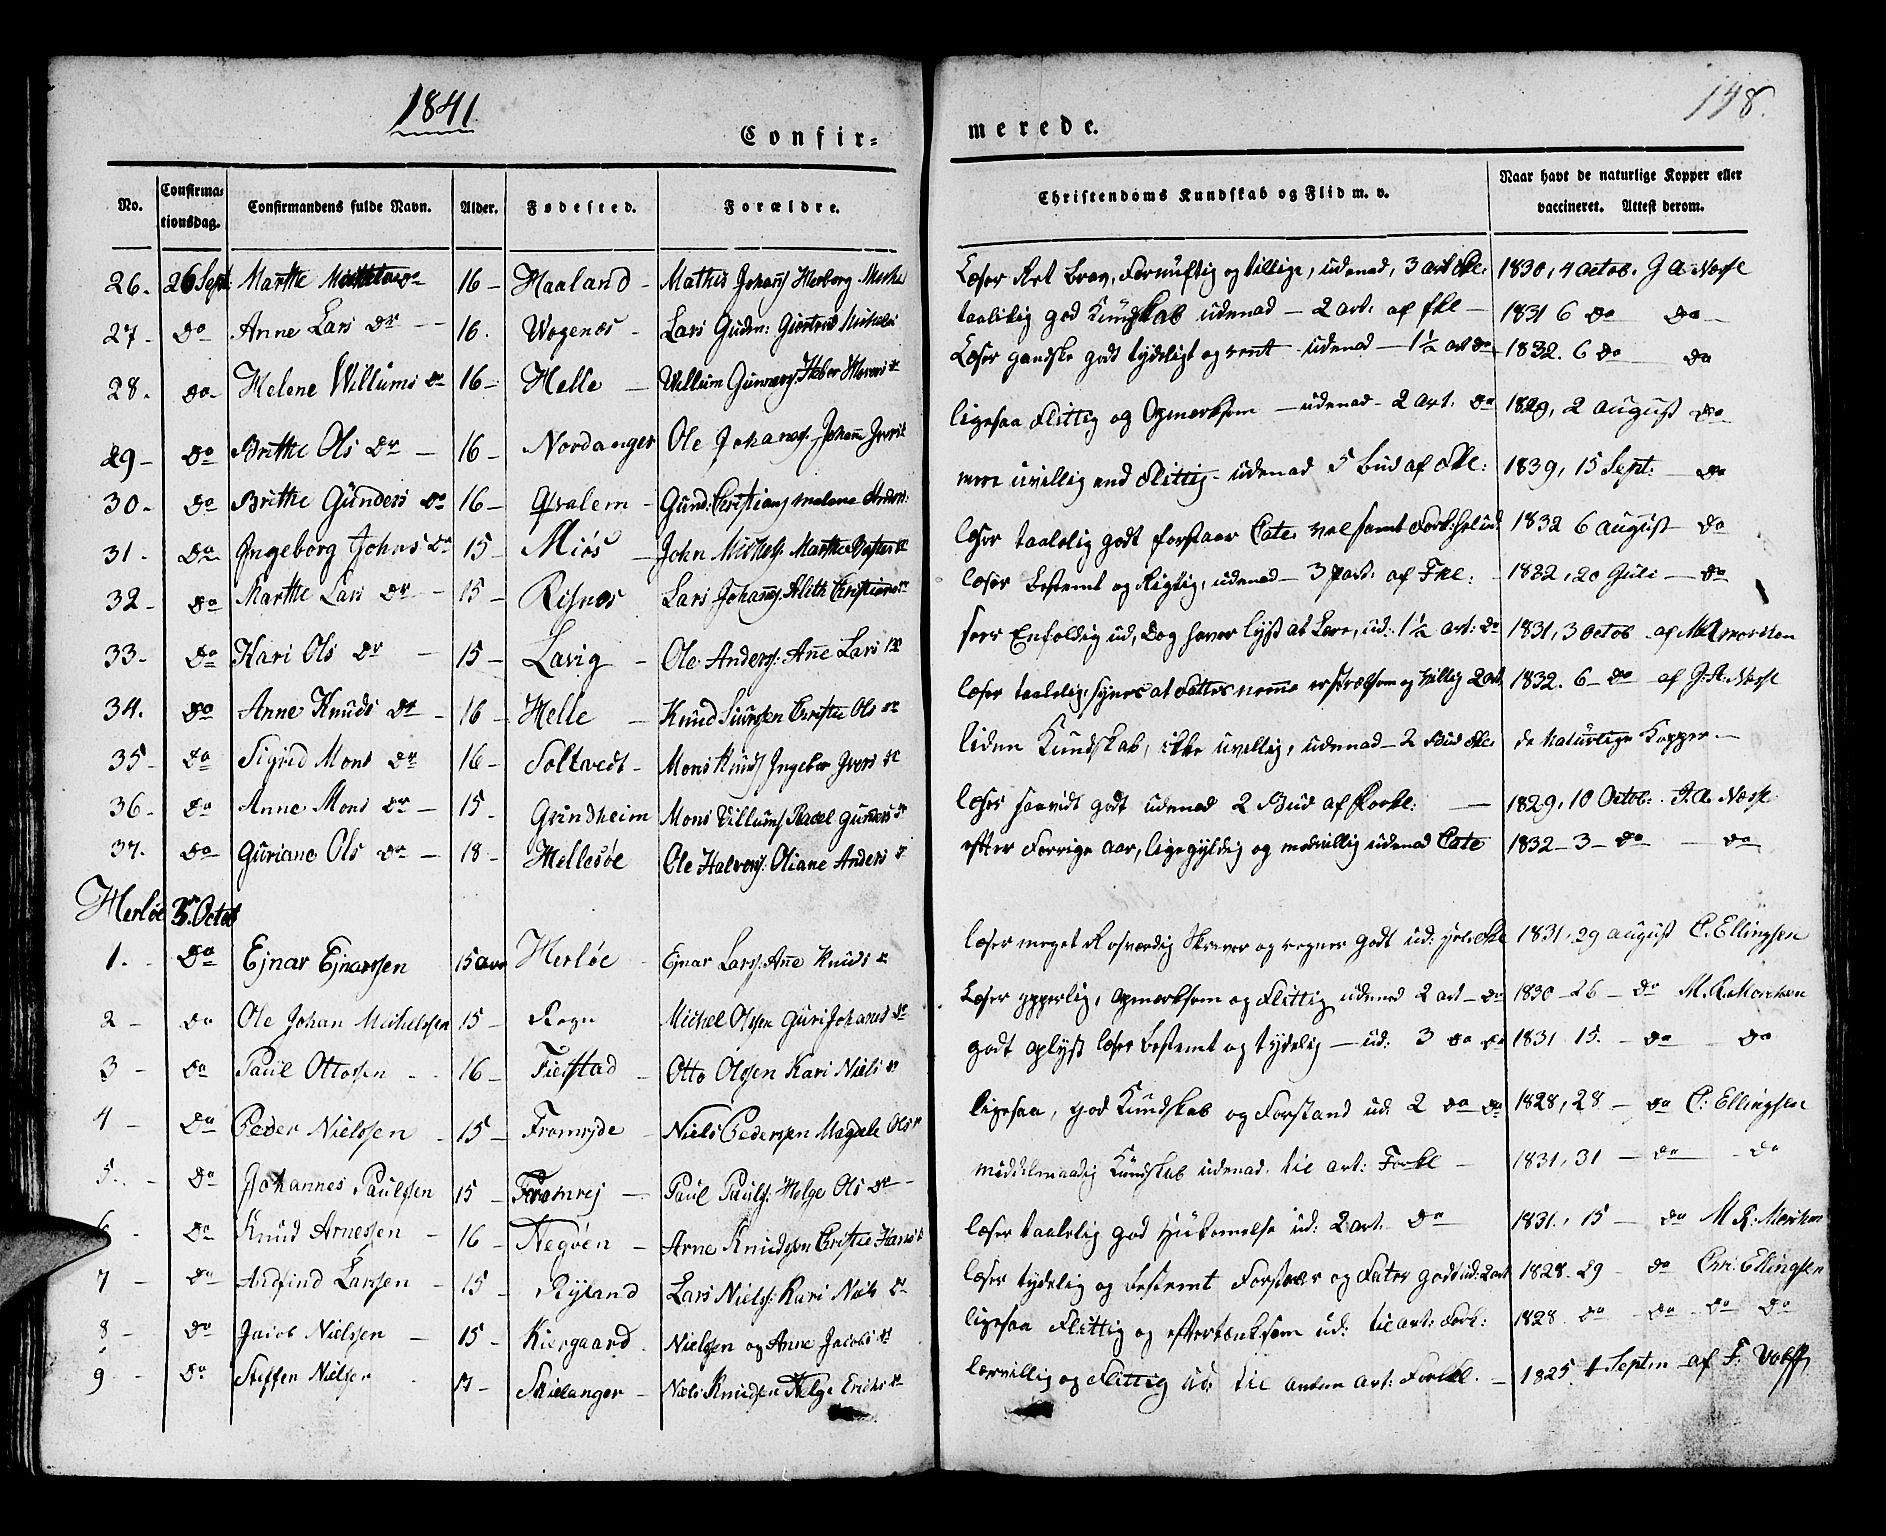 1841
148.
Confir=
merede.
No. Confirma=tionsdag. Confirmandens fulde Navn. Alder. Fødested. Forældre. Christendoms Kundskab og Flid m. v. Naar havt de naturlige Kopper eller vaccineret. Attest derom.
26. 26 Sept: Marthe 16 – Haaland – Mathis Johans Herborg Læser Ret Brav, Fornuftig og villig, udenad, 3 art 1830, 4 Octob. J A Næse
27 – Do Anne Lars Dr – 16. Vogenæs – Lars Gudm: taalelig god Kundskab udenad – 2 art. af Fkl – 1831 6 Do Do
28. Do Helene Willums Dr 16 – Helle – Villum Læser gandske godt tydeligt og rent udenad – 1½ art Do 1832. 6 Do Do
29 – Do Brithe Ols Dr – 16 – Nordanger Ole Johans: ligesaa Flittig og Opmerksom – udenad – 2 art. Do 1829, 2 August Do
30. Do Brithe Gunders Dr 16 – Qvalem – Gund: Christians Malene Anders: mere uvillig end Flittig – udenad 5 Bud af Fkl: 1839, 15 Sept. – Do
31. Do Ingeborg Johns Dr 15 – Miøs – John Michels Marthe læser taalelig godt forstaar Cate. vel samt Fork: 1832 6 August – Do
32 – Do Marthe Lars Dr – 15 – Risnæs Lars Johans: læser Bestemt og Rigtig, udenad – 3 part. af Fkl: – 1832, 20 Juli – Do
33 – Do Kari Ols Dr – 15 – Lavig – Ole Anders: Ane Lars Dr Enfoldig ud, Dog haver lyst at Lære, ud: 1½ art: Do 1831, 3 Octob af
34. Do Anne Knuds Dr – 16 – Helle – Knud Siursen Christie Ols Dr læser taalelig, synes at og villig 2 art 1832. 6 – Do af J. A. Næse
35 – Do Sigrid Mons Dr 16 – Soltvedt – Mons Knuds Ingebor Ivers Dr liden Kundskab, ikke uvillig, udenad – 2 Bud de Naturlige Kopper –
36. Do Anne Mons Dr – 15. Grindheim Mons Villums Rael Gunders Dr læser saavidt godt udenad 2 Bud af Forkl: – 1829, 10 Octob: J. A. Næse
37. Do Guriane Ols Dr – 18 – Hellesøe Ole Halvors: Oliane Anders Dr efter Forrige Aar, ligegyldig og modvillig udenad Cate 1832 – 3 – Do – Do
Herløe 3. Octob
1. Do Ejnar Ejnarsen 15 Herløe – Ejnar Lars: Ane Knuds Dr læser meget Rosværdig Skriver og regner godt ud: 1831, 29 August C. Ellingsen
2 – Do Ole Johan Michelsen 15 – Rogn Michel Olsen Guri Johans Dr Læser ypperlig, opmerksom og Flittig udenad 2 art – Do 1830 – 26 – Do M. R. Morthen
3 – Do Paul Ottosen – 16 – Fieistad – Otto Olssen Kari Niels Dr godt oplyst læser Bestemt og tydelig – ud: 3 Do Do 1831 15. – Do Do
4 – Do Peder Nielssen – 15 – Fromrejde – Niels Pederssen Magdele Ols Dr ligesaa, god Kundskab og Forstand ud: 2 Do Do 1828, 28 – Do C: Ellingsen
5. – Do Johannes Paulssen 15 – Framrej – Paul Pauls: Helge Ols Dr – middelmaadig Kundskab udenad. til art: Forkl – 1831, 31 – Do – Do
6 – Do Knud Arnessen – 16 – Negøen – Arne Knudssen Christie Hans Dr læser taalelig god Hukomelse ud: 2 art. Do 1831., 15 – Do M R. Morthen
7 – Do Andfind Larssen – 15 – Ryland Lars Niels: Kari Niels Dr læser tydelig og Bestemt Forstaar og Fater godt ud: 2 art 1828. 29 – Do Chr: Ellingsen
8 – Do Jacob Nielssen – 15 – Kiergaard. Nielssen og Anne Jacobs Dr ligesaa Flittig og eftertænksom ud: til art: Fork: 1828. Do – Do – Do Do
9 – Do Steffen Nielsen 17 – Skielanger – Niels Knudsen Helge Erichs Dr lærvillig og Flittig ud: til anden art: Forkl. – 1825. 1 Septm – af F. Wolff